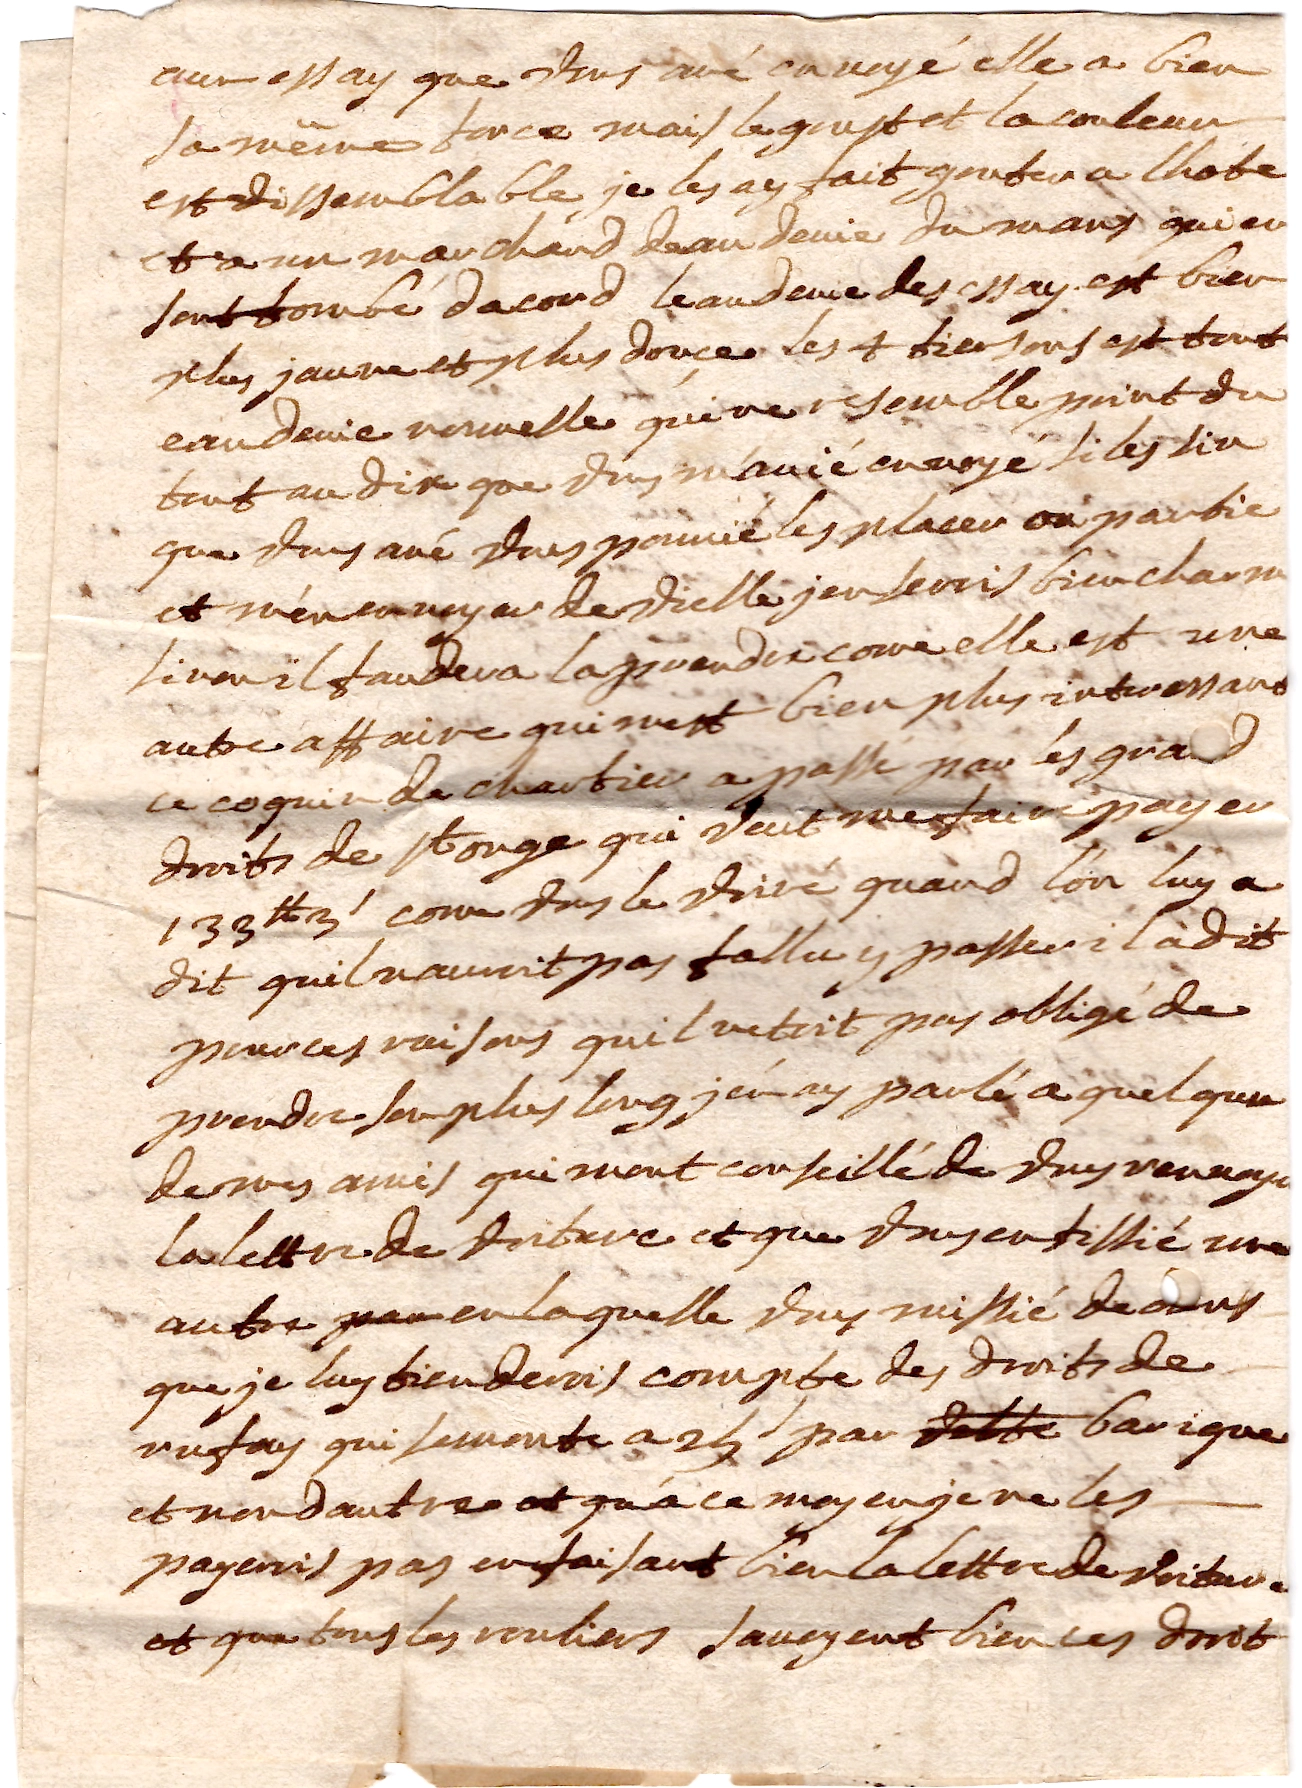 aux essay que vous avé envoyé elle a bien
sa même force mais le goust et la couleur
est dissemblable je les ay fait gouter a lhote
et a un marchand deaudevie du mans qui en
sont tombé dacord leaudevie des essay est bien
plus jaune et plus douce les 4 tiersons est tout
eaudevie nouvelle qui ne resemble point du
tout au dire que vous m'avié envoyé si les lieu
que vous avé vous pouvié les placer ou partie
et m'en envoyer de vielle jen serois bien charm
sinon il faudera la prendre come elle est une
autre affaire qui mest bien plus interessant
ce coquin de chartier a passé par les grand
droits de st onge qui veut me faire payer
133ᵗᵗ 3ˢ come vous le voiré quand l'on luy a
dit quil nauroit pas fallu y passer il a dit
pour ces raisons quil netoit pas obligé de
prendre son plus long j'en ay parlé a quelquun
de mes amis qui mont conseillé de vous renvoyer
la lettre de voiture et que vous en fissié une
autre en laquelle vous missié dedans
que je luy tienderois compte des droits de
rufay qui se monte a 25ˢ par barique
et non dautre et qu'a ce moyen je ne les
payerois pas en faisant bien la lettre de voiture
et que tous les rouliers savoyent bien ces droit